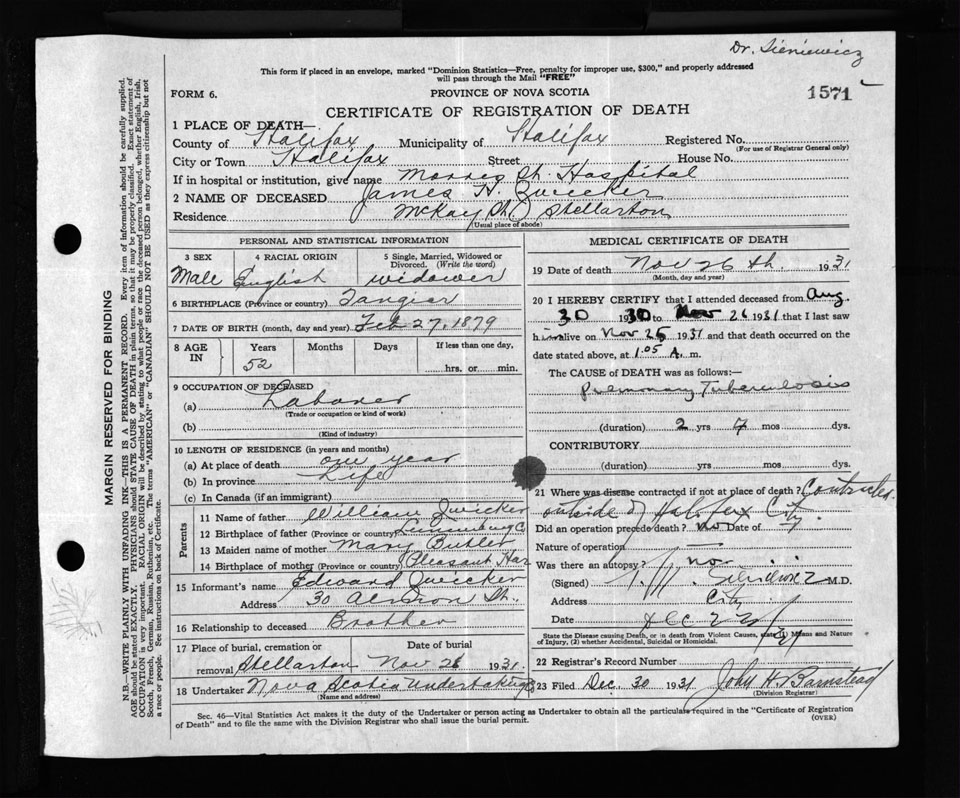 Dr. Sieniewicz
This form if placed in an envelope, marked "Dominion Statistics—Free, penalty for improper use, $300," and properly addressed
will pass through the Mail "FREE"
FORM 6.
PROVINCE OF NOVA SCOTIA
1571
CERTIFICATE OF REGISTRATION OF DEATH
1 PLACE OF DEATH—
County of Halifax Municipality of Halifax Registered No.
(For use of Registrar General only)
City or Town Halifax Street House No.
If in hospital or institution, give name Morris St. Hospital
2 NAME OF DECEASED James N. Zwicker
Residence McKay St. Stellarton
(Usual place of abode)
PERSONAL AND STATISTICAL INFORMATION
3 SEX 4 RACIAL ORIGIN 5 Single, Married, Widowed or
Divorced. (Write the word)
Male English widower
6 BIRTHPLACE (Province or country) Tangier
7 DATE OF BIRTH (month, day and year) Feb 27, 1879
8 AGE IN Years Months Days If less than one day,
52 hrs. or min.
9 OCCUPATION OF DECEASED
(a) Laborer
(Trade or occupation or kind of work)
(b)
(Kind of industry)
10 LENGTH OF RESIDENCE (in years and months)
(a) At place of death one year
(b) In province Life
(c) In Canada (if an immigrant)
Parents
11 Name of father William Zwicker
12 Birthplace of father (Province or country) Lunenburg C
13 Maiden name of mother Mary Butler
14 Birthplace of mother (Province or country) Pleasant Har
15 Informant's name Edward Zwicker
Address 30 St.
16 Relationship to deceased Brother
17 Place of burial, cremation or Date of burial
removal Stellarton Nov 28 1931.
18 Undertaker Nova Scotia Undertaking
(Name and address)
MEDICAL CERTIFICATE OF DEATH
19 Date of death Nov 26 th. 1931
(Month, day and year)
20 I HEREBY CERTIFY that I attended deceased from Aug.
30 1930 to Nov 26 1931 that I last saw
him alive on Nov 25 1931 and that death occurred on the
date stated above, at 1.05 A. m.
The CAUSE of DEATH was as follows:—
Pulmonary Tuberculosis
(duration) 2 yrs 7 mos dys.
CONTRIBUTORY
(duration) yrs. mos. dys.
21 Where was disease contracted if not at place of death? Contracted
outside of Halifax City.
Did an operation precede death? no Date of
Nature of operation —
Was there an autopsy? no
(Signed) Sieniewicz M.D.
Address City
Date Dec
State the Disease causing Death, or in death from Violent Causes, state (1) Means and Nature
of Injury, (2) whether Accidental, Suicidal or Homicidal.
22 Registrar's Record Number
23 Filed Dec. 30 1931 John H. Barnstead
(Division Registrar)
Sec. 46—Vital Statistics Act makes it the duty of the Undertaker or person acting as Undertaker to obtain all the particulars required in the "Certificate of Registration
of Death" and to file the same with the Division Registrar who shall issue the burial permit.
(OVER)
MARGIN RESERVED FOR BINDING
N.B.—WRITE PLAINLY WITH UNFADING INK—THIS IS A PERMANENT RECORD. Every item of information should be carefully supplied.
AGE should be stated EXACTLY. PHYSICIANS should STATE CAUSE OF DEATH in plain terms, so that it may be properly classified. Exact statement of
OCCUPATION is very important. RACIAL ORIGIN will be described by stating to what people or race the deceased person belonged, whether English, Irish,
Scotch, French, German, Russian, Ruthenian, etc. The terms "AMERICAN" or "CANADIAN" SHOULD NOT BE USED as they express citizenship but not
a race or people. See instructions on back of Certificate.